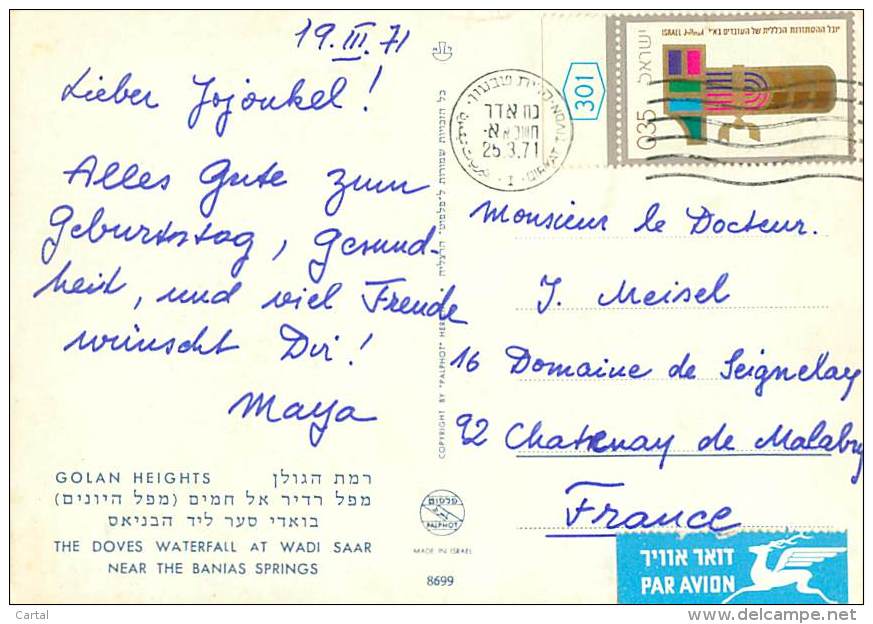 19.III.71
Lieber Jojonkel!
Alles Gute zum
Geburtstag, Gesund-
heit, und viel Freude
wünscht Dir!
Maya
רמת הגולן
GOLAN HEIGHTS
מפל רדיר אל חמים (מפל היונים)
בואדי סער ליד הבניאס
THE DOVES WATERFALL AT WADI SAAR
NEAR THE BANIAS SPRINGS
COPYRIGHT BY "PALPHOT"
כל הזכויות שמורות ל"פלפוט" הרצליה
פלפוט
PALPHOT
MADE IN ISRAEL
8699
301
כח אדר
תשלא
25.3.71
יובל ההסתדרות הכללית של העובדים בא"י
ISRAEL
ישראל
0.35
Monsieur le Docteur.
J. Meisel
16 Domaine de Seignelay
92 Chatenay de Malabry
France
דואר אוויר
PAR AVION
Cartal
http://www.delcampe.net